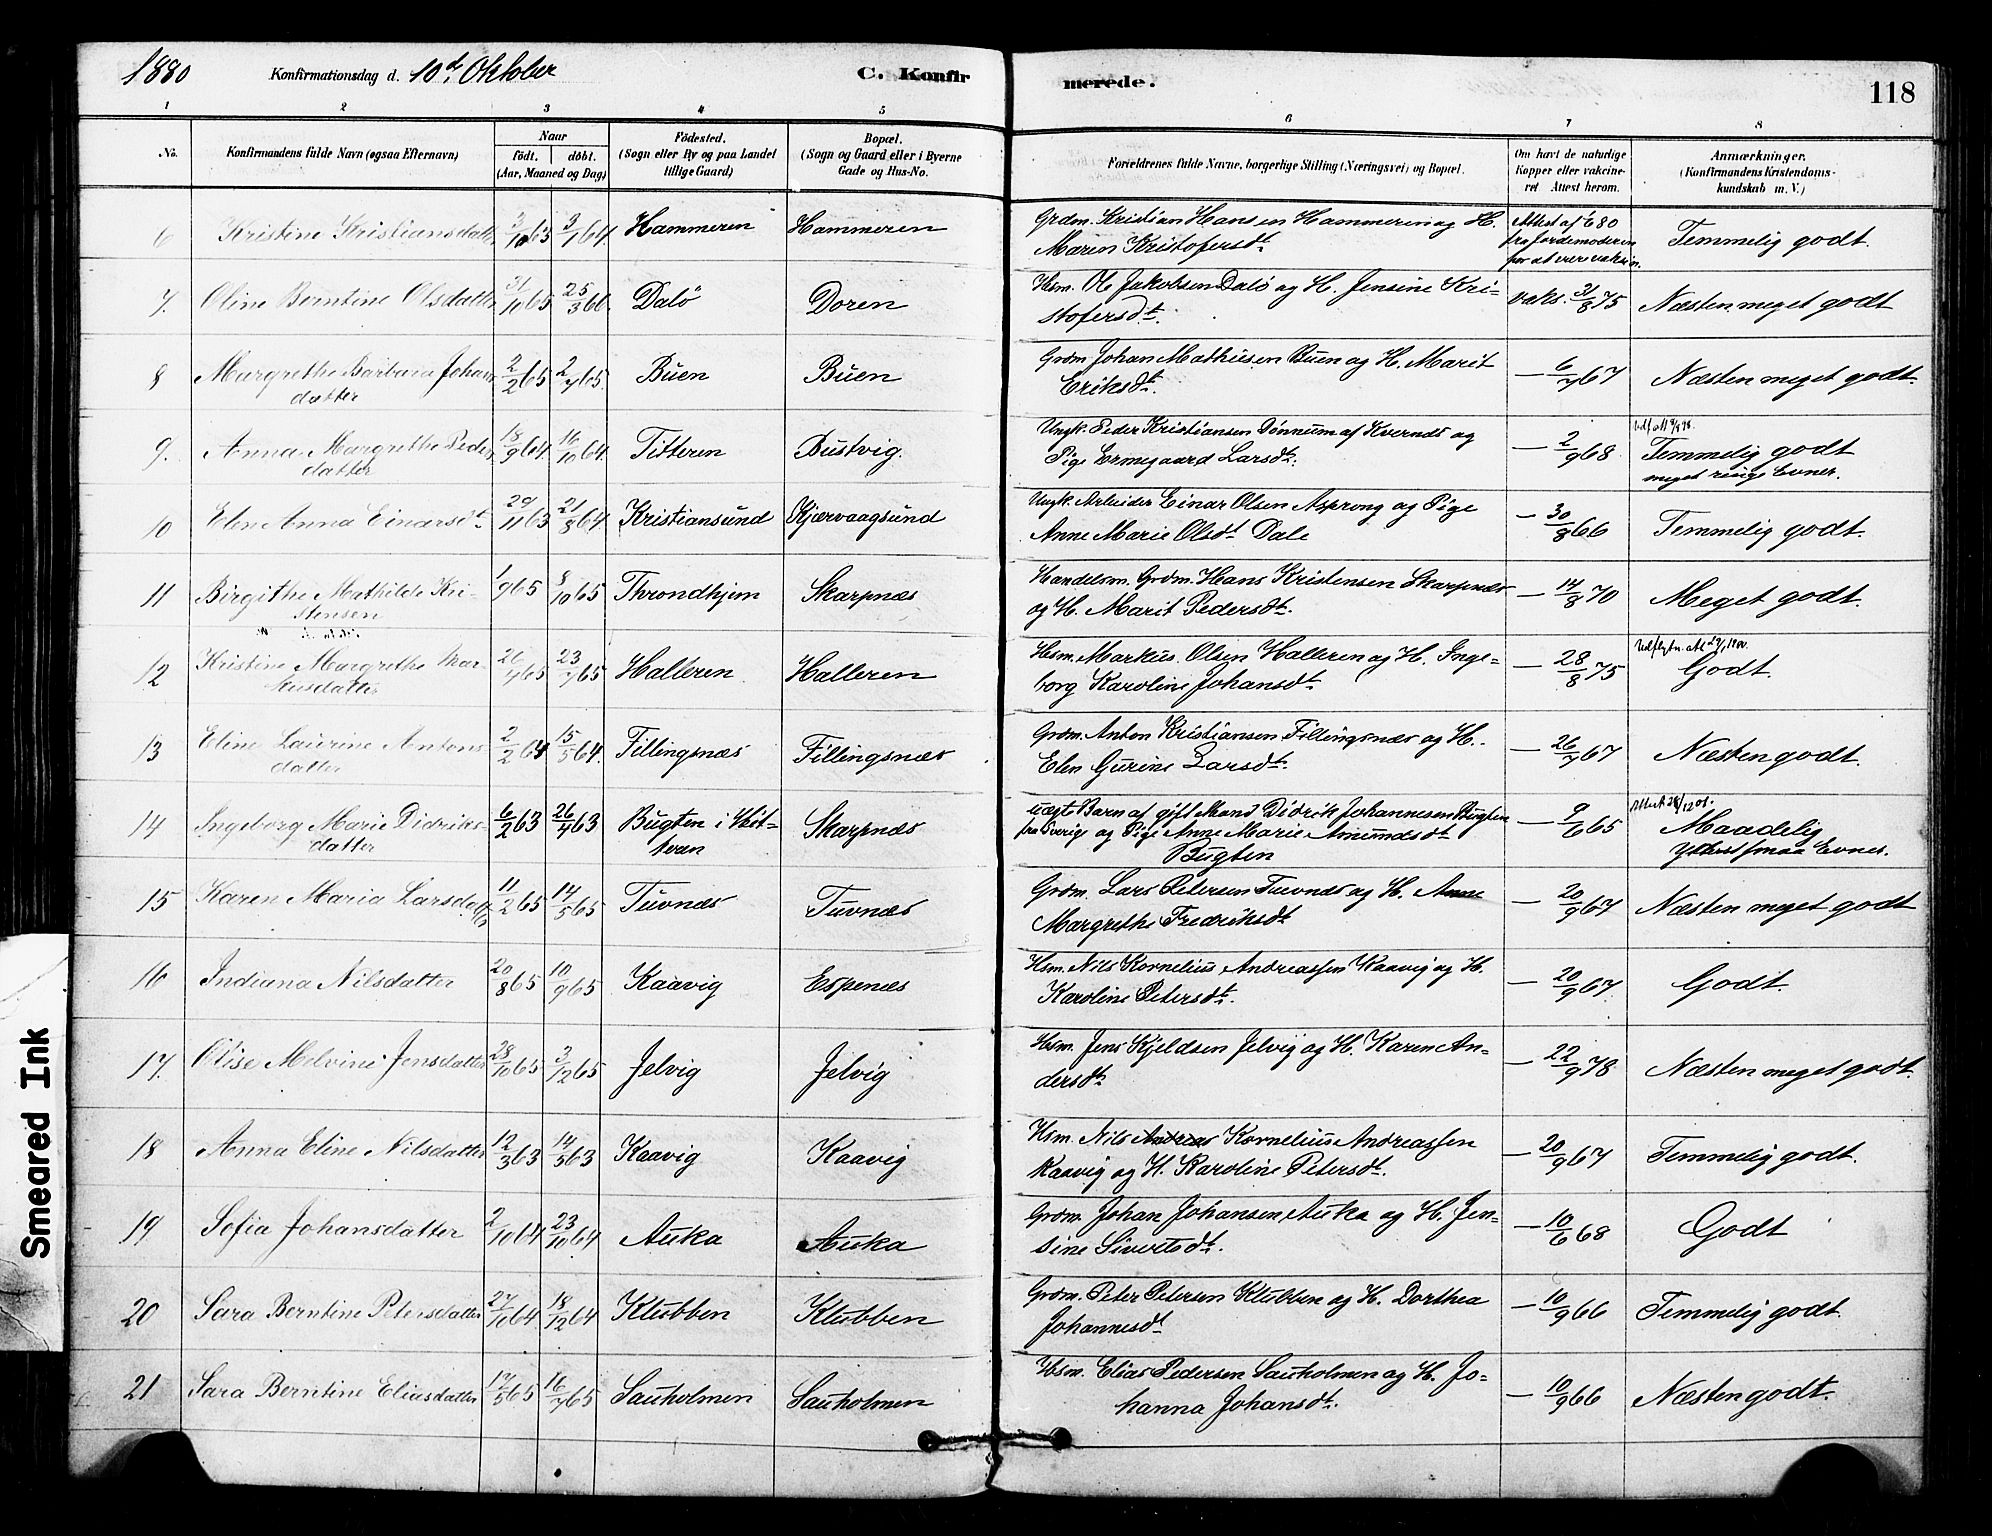 1880 Konfirmationsdag d. 10d. Oktober C. Konfirmerede. 118
1 2 3 4 5 6 7 8
No. Konfirmandens fulde Navn (ogsaa Efternavn) Naar födt. döbt. (Aar, Maaned og Dag) Födested. (Sogn eller By og paa Landet tillige Gaard) Bopæl. (Sogn og Gaard eller i Byerne Gade og Hus-No. Forældrenes fulde Navne, borgerlige Stilling (Næringsvei) og Bopæl. Om havt de naturlige Kopper eller vakcineret Attest herom. Anmærkninger. (Konfirmandens Kristendomskundskab m. V.)
6 Kristine Kristiansdatter 3/10 63 3/1 64. Hammeren Hammeren Grdm. Kristian Hansen Hammeren og H. Maren Kristofersdt. Attest af 80 fra Jordemoderen for at være vaksin. Temmelig godt.
7. Oline Berntine Olsdatter 31/10 65 25/3 66. Dalö Doren Hsm. Ole Jakobsen Dalö og H. Jensine Kristofersdt. vaks. 31/8 75 Næsten meget godt
8 Margrethe Barbara Johansdatter 2/2 65 2/7 65. Buen Buen Grdm Johan Mathiesen Buen og H. Marit Eriksdt. — 6/7 67 Næsten meget godt.
9. Anna Margrethe Pedersdatter 18/9 64. 16/10 64. Titteren Bustvig. Ungk. Peder Kristiansen Dönnum af Kvernes og Pige Ermegaard Larsdt. — 2/9 68 Temmelig godt meget ringe Evner.
10 Elen Anna Einarsdt. 29/11 63 21/8 64 Kristiansund Kjørvaagsund Ungk. Arbeider Einar Olsen Asprong og Pige Anne Marie Olsdt Dale — 30/8 66 Temmelig godt.
11 Birgithe Mathilde Kristensen 1/9 65 8/10 65 Throndhjem Skarpnæs Handelsm. Grdm. Hans Kristensen Skarpnæs og H. Marit Pedersdt. — 14/8 70 Meget godt.
12 Kristine Margrethe Markusdatter 26/4 65 23/7 65 Halleren Halleren Hsm. Markus Olsen Halleren og H. Ingeborg Karoline Johansdt. — 28/8 75 Godt.
13 Eline Laurine Antonsdatter 2/2 64 15/5 64. Fillingsnæs Fillingsnæs Grdm. Anton Kristiansen Fillingsnæs og H. Elen Gurine Larsdt. — 26/7 67 Næsten godt.
14 Ingeborg Marie Didriksdatter 6/2 63 26/4 63 Bugten i Skarpnæs uægt Barn af gift Mand Didrik Johannesen Bugten og Pige Anne Marie Amundsdt Bugten — 9/6 65 Maadelig Yderst smaa Evner.
15 Karen Maria Larsdatter 11/2 65 14/5 65 Tuvnæs Tuvnæs Grdm. Lars Petersen Tuvnæs og H. Anne Margrethe Fredriksdt — 20/9 67 Næsten meget godt
16 Indiana Nilsdatter 20/8 65 10/9 65 Kaavig Espenæs Hsm. Nils Kornelius Andreassen Kaavig og H. Karoline Petersdt. — 20/9 67 Godt.
17. Olise Melvine Jensdatter 28/10 65 3/12 65 Jelvig Jelvig Hsm. Jens Kjeldsen Jelvig og H. Karen Andersdt — 22/9 78 Næsten meget godt.
18 Anna Eline Nilsdatter 12/3 63 14/5 63 Kaavig Kaavig Hsm. Nils Andreas Kornelius Andreassen Kaavig og H. Karoline Petersdt. — 20/9 67 Temmelig godt.
19 Sofia Johansdatter 2/10 64 23/10 64 Auka Auka Grdm. Johan Johansen Auka og H. Jensine Sivertsdt. — 10/6 68 Godt
20 Sara Berntine Petersdatter 27/10 64. 18/12 64 Klubben Klubben Grdm. Peter Petersen Klubben og H. Dorthea Johannesdt — 10/9 66 Temmelig godt.
21 Sara Berntine Eliasdatter 17/5 65 16/7 65 Sauholmen Sauholmen Hsm. Elias Pedersen Sauholmen og H. Johanna Johansdt. — 10/9 66 Næsten godt.
Smeared Ink